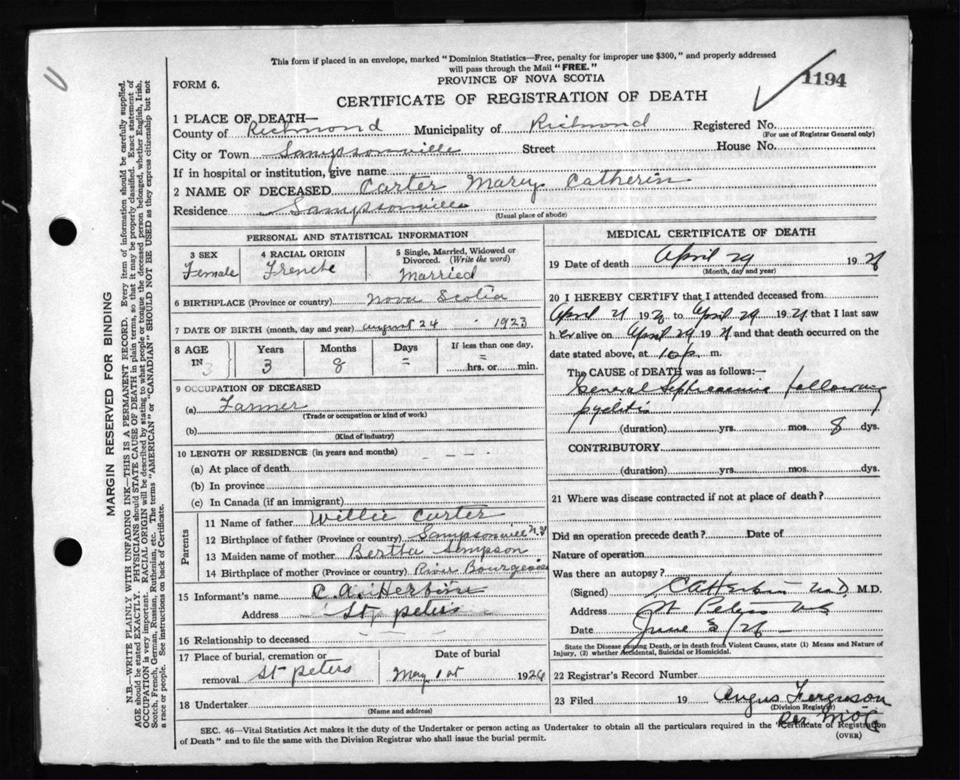 This form if placed in an envelope, marked "Dominion Statistics—Free, penalty for improper use $300," and properly addressed
will pass through the Mail "FREE."
1194
PROVINCE OF NOVA SCOTIA
FORM 6.
CERTIFICATE OF REGISTRATION OF DEATH
1 PLACE OF DEATH—
County of Richmond Municipality of Richmond Registered No.
(For use of Registrar General only)
City or Town Sampsonville Street House No.
If in hospital or institution, give name
2 NAME OF DECEASED Carter Mary Catherin
Residence Sampsonville
(Usual place of abode)
PERSONAL AND STATISTICAL INFORMATION
3 SEX 4 RACIAL ORIGIN 5 Single, Married, Widowed or
Divorced. (Write the word)
Female French Married
6 BIRTHPLACE (Province or country) Nova Scotia
7 DATE OF BIRTH (month, day and year) August 24 - 1923
8 AGE Years Months Days If less than one day,
IN 3 3 8 = =
hrs. or min.
9 OCCUPATION OF DECEASED
(a) Farmer
(Trade or occupation or kind of work)
(b)
(Kind of industry)
10 LENGTH OF RESIDENCE (in years and months) - - -
(a) At place of death
(b) In province
(c) In Canada (if an immigrant)
Parents
11 Name of father Willie Carter
12 Birthplace of father (Province or country) Sampsonvill N.S
13 Maiden name of mother Bertha Simpson
14 Birthplace of mother (Province or country) River Bourgeoise
15 Informant's name C. A. Herbine
Address St peters
16 Relationship to deceased
17 Place of burial, cremation or Date of burial
removal St Peters May 1st 1926
18 Undertaker
(Name and address)
MEDICAL CERTIFICATE OF DEATH
19 Date of death April 29 19
(Month, day and year)
20 I HEREBY CERTIFY that I attended deceased from
April 21 19 to April 29 19 that I last saw
h er alive on April 29 19 and that death occurred on the
date stated above, at 10 p. m.
The CAUSE of DEATH was as follows:—
General Septicaemia following
pyelitis
(duration) yrs. mos. 8 dys.
CONTRIBUTORY
(duration) yrs. mos. dys.
21 Where was disease contracted if not at place of death?
Did an operation precede death? Date of
Nature of operation
Was there an autopsy?
(Signed) C A Herbin M.D. M.D.
Address St Peters NS
Date June
State the Disease causing Death, or in death from Violent Causes, state (1) Means and Nature of
Injury, (2) whether Accidental, Suicidal or Homicidal.
22 Registrar's Record Number
23 Filed 19 Angus Ferguson
(Division Registrar)
SEC. 46—Vital Statistics Act makes it the duty of the Undertaker or person acting as Undertaker to obtain all the particulars required in the Certificate of Registration
of Death" and to file the same with the Division Registrar who shall issue the burial permit.
(OVER)
MARGIN RESERVED FOR BINDING
N.B.—WRITE PLAINLY WITH UNFADING INK—THIS IS A PERMANENT RECORD. Every item of information should be carefully supplied.
AGE should be stated EXACTLY. PHYSICIANS should STATE CAUSE OF DEATH in plain terms, so that it may be properly classified. Exact statement of
OCCUPATION is very important. RACIAL ORIGIN will be described by stating to what people or tongue the deceased person belonged, whether English, Irish,
Scotch, French, German, Russian, Ruthenian, etc. The terms "AMERICAN" or "CANADIAN" SHOULD NOT BE USED as they express citizenship but not
a race or people. See instructions on back of Certificate.